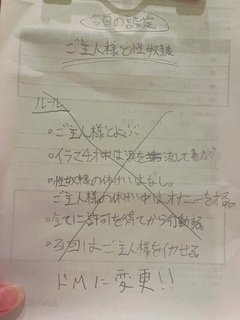 今日の設定
ご主人様と性奴隷
ルール
・ご主人様とよぶ
・イラマチオ中は涙を流して喜ぶ
・性奴隷の休けいはなし。
ご主人様の休けい中はオナニーをする。
・全てに許可を得てから行動する
・3回はご主人様をイカせる。
ドMに変更!!